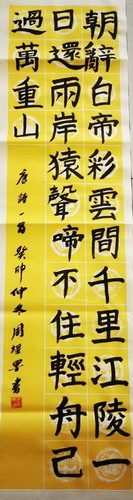 朝辭白帝彩雲間千里江陵一
日還兩岸猿聲啼不住輕舟已
過萬重山
唐詩一首 癸卯仲冬周煜景書